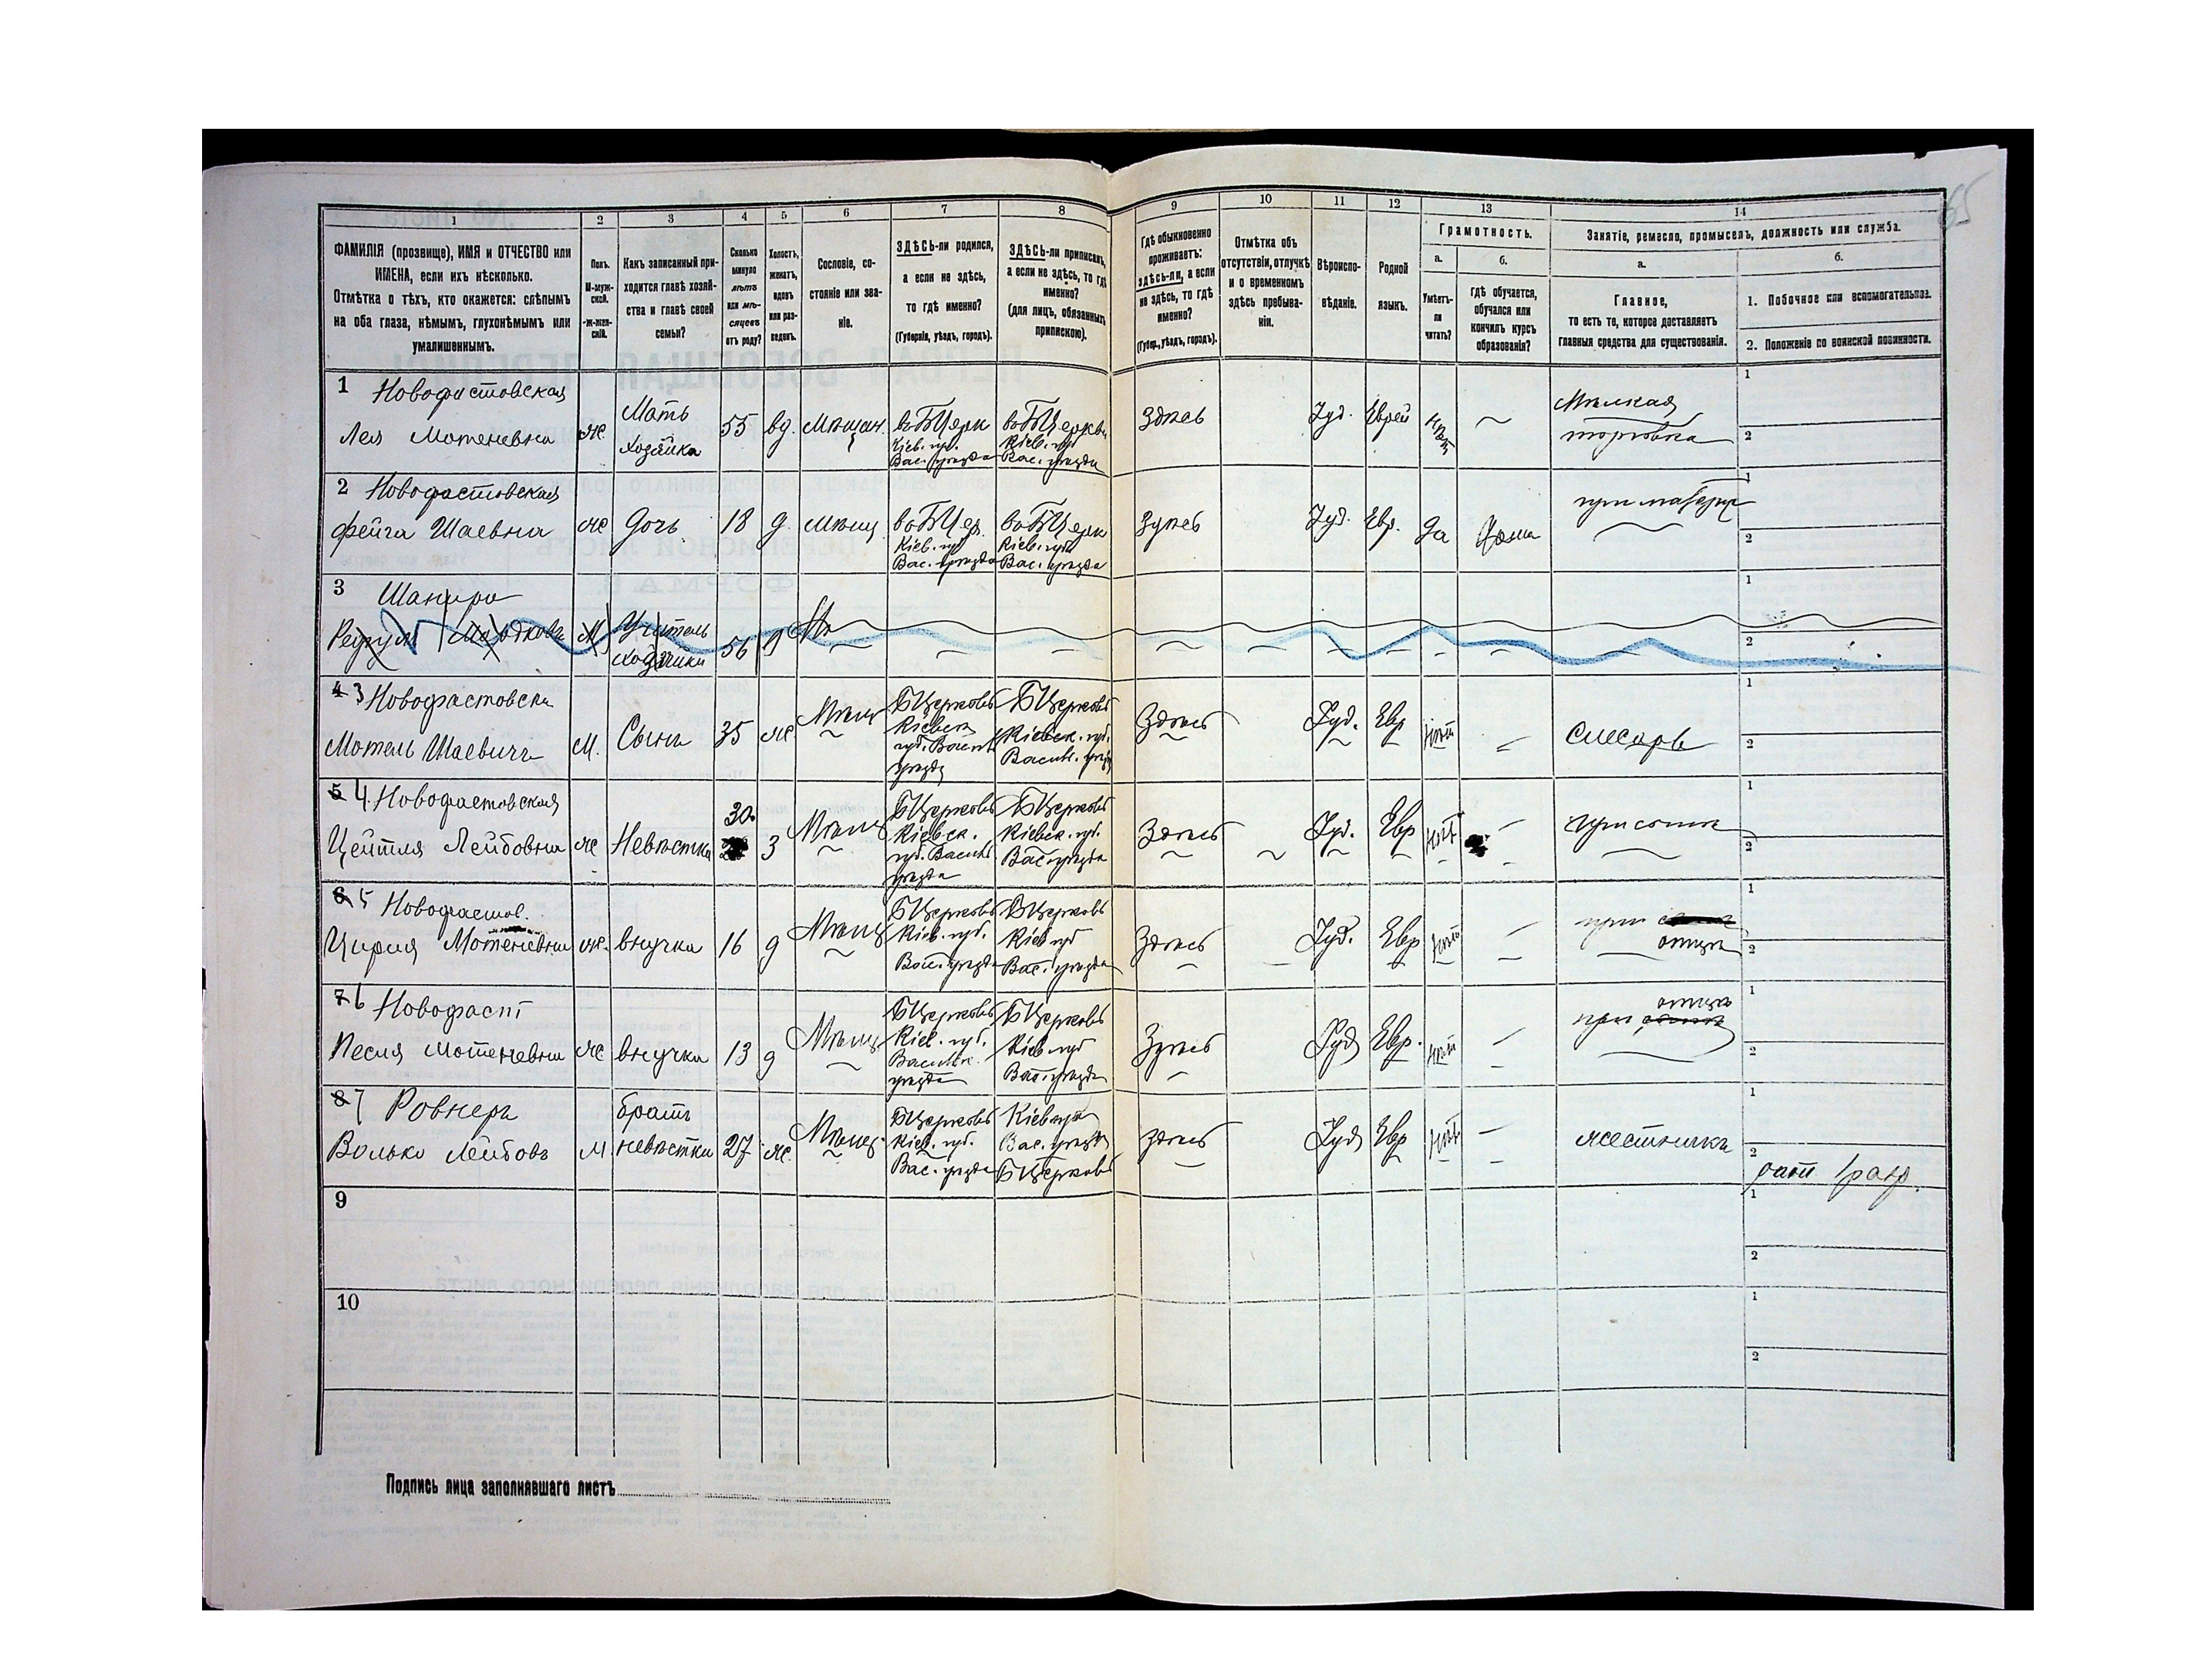 1 2 3 4 5 6 7 8 9 10 11 12 13 14
ФАМИЛІЯ (прозвище), ИМЯ и ОТЧЕСТВО или
ИМЕНА, если ихъ нѣсколько.
Отмѣтка о тѣхъ, кто окажется: слѣпымъ
на оба глаза, нѣмымъ, глухонѣмымъ или
умалишеннымъ.
Полъ.
М-муж-
ской.
Ж-жен-
скій.
Какъ записанный при-
ходится главѣ хозяй-
ства и главѣ своей
семьи?
Сколько
минуло
лѣтъ
или мѣ-
сяцевъ
отъ роду?
Холостъ,
женатъ,
вдовъ
или раз-
веденъ.
Сословіе, со-
стояніе или зва-
ніе.
ЗДѢСЬ-ли родился,
а если не здѣсь,
то гдѣ именно?
(Губернія, уѣздъ, городъ).
ЗДѢСЬ-ли приписанъ,
а если не здѣсь, то гдѣ
именно?
(для лицъ, обязанныхъ
припискою).
Гдѣ обыкновенно
проживаетъ:
здѣсь-ли, а если
не здѣсь, то гдѣ
именно?
(Губер., уѣздъ, городъ).
Отмѣтка объ
отсутствіи, отлучкѣ
и о временномъ
здѣсь пребыва-
ніи.
Вѣроиспо-
вѣданіе.
Родной
языкъ.
Грамотность.
а.
Умѣетъ-
ли
читать?
б.
гдѣ обучается,
обучался или
кончилъ курсъ
образованія?
Занятіе, ремесло, промыселъ, должность или служба.
а.
Главное,
то есть то, которое доставляетъ
главныя средства для существованія.
б.
1. Побочное или вспомогательное.
2. Положеніе по воинской повинности.
1 Новофастовская
Лея Мотелевна
ж.
Мать
хозяйка
55
вд.
Мѣщан.
въ БЦерк
Кіев. губ.
Вас. уѣзда
въ БЦеркви
Кіев. губ
Вас. уѣзда
Здѣсь
Іуд.
Еврей
нѣт
Мѣлкая
торговка
1
2
2 Новофастовская
Фейга Шаевна
ж
дочь
18
д.
мѣщ
въ БЦер.
Кіев. губ
Вас. уѣзда
въ БЦерк
Кіев. губ
Вас. уѣзда
Здѣсь
Іуд.
Евр.
да
дома
при матери
1
2
3 Шапиро
М
Учитель
хозяйки
56
1
2
4 3 Новофастовски
Мотель Шаевичъ
М.
Сынъ
35
ж.
Мѣщ
БЦерковь
Кіевск
губ. Васил
уѣзда
БЦерковь
Кіевск. губ.
Васил. уѣзд
Здѣсь
Іуд.
Евр
нѣт
слесарь
1
2
5 4. Новофастовская
Цейтля Лейбовна
ж
Невѣстка
30
З
Мѣщ
БЦерковь
Кіевск.
губ. Васил
уѣзда
БЦерковь
Кіевск. губ.
Вас уѣзда
Здѣсь
Іуд.
Евр
нѣт
1
2
6 5 Новофастов.
Ципря Мотелевна
ж.
внучка
16
д
Мѣщ
БЦерковь
Кіев. губ.
Вас. уѣзда
БЦерковь
Кіев губ
Вас. уѣзда
Здѣсь
Іуд.
Евр
нѣт
при
отцѣ
1
2
7 6 Новофаст
Песля Мотелевна
ж
внучка
13
д
Мѣщ
БЦерковь
Кіев. губ.
Васильк.
уѣзда
БЦерковь
Кіев губ
Вас. уѣзда
Здѣсь
Іуд
Евр.
нѣт
отцѣ
при
1
2
8 7 Ровнеръ
Волько Лейбовъ
М
братъ
невѣстки
27
ж.
Мѣщ.
БЦерковь
Кіев. губ.
Вас. уѣзда
Кіев губ
Вас. уѣзда
БЦерковь
здѣсь
Іуд
Евр
нѣт
жестникъ
1
2
рат 1 разр.
9
1
2
10
1
2
Подпись лица заполнявшаго листъ